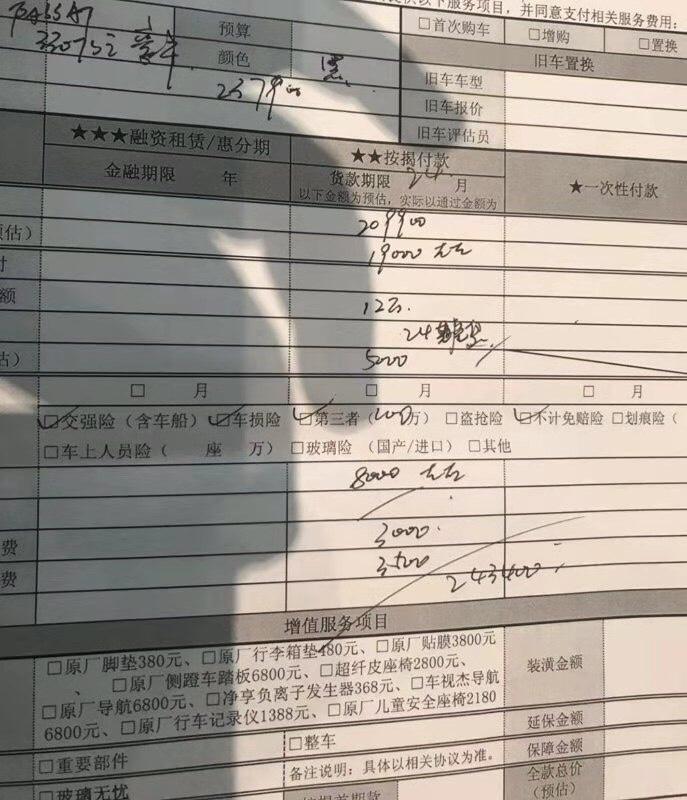 提供以下服务项目，并同意支付相关服务费用：
330 豪华 预算 □首次购车 □增购 □置换
颜色 黑 旧车置换
237900 旧车车型
旧车报价
旧车评估员
★★★融资租赁/惠分期 ★★按揭付款 ★一次性付款
金融期限 年 货款期限 24 月
以下金额为预估，实际以通过金额为
预估） 209900
付 19000 左右
额 12万.
24
估） 5000
□ 月 □ 月 □ 月
☑交强险（含车船） ☑车损险 ☑第三者（200万） □盗抢险 ☑不计免赔险 □划痕险（
□车上人员险（ 座 万） □玻璃险 （国产/进口） □其他
8000 左右
费 3000.
费 3500
243400
增值服务项目
□原厂脚垫380元、□原厂行李箱垫480元、□原厂贴膜3800元
、 □原厂侧蹬车踏板6800元、□超纤皮座椅2800元、 装潢金额
□原厂导航6800元、□净享负离子发生器368元、□车视杰导航
6800元、□原厂行车记录仪1388元、□原厂儿童安全座椅2180 延保金额
□重要部件 □整车 保障金额
备注说明：具体以相关协议为准。 全款总价
□玻璃无忧 按揭首期款 （预估）